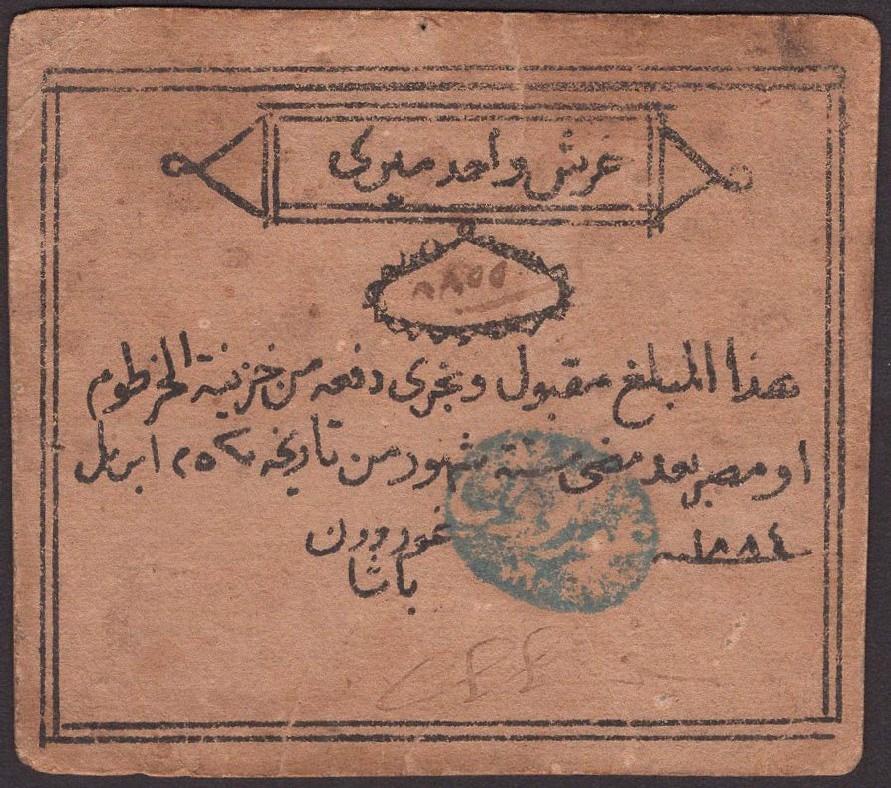 غرش واحد ميرى
٨٨٥٥
هذا المبلغ مقبول ويجرى دفعه من خزينة الخرطوم
او مصر بعد مضى ستة شهور من تاريخه ٢٥ ابريل
١٨٨٤
غوردون
باشا